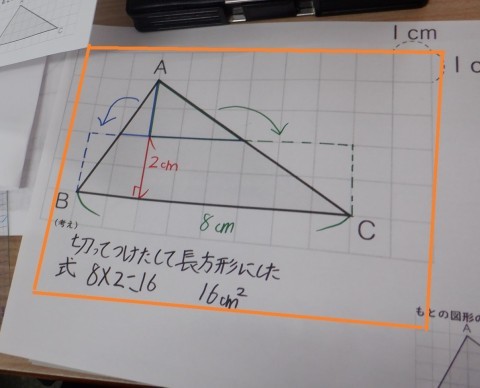 1 cm
1 c
A
2cm
B
8cm
C
(考え)
切ってつけたして長方形にした
式 8×2=16 16cm²
もとの図形の
A